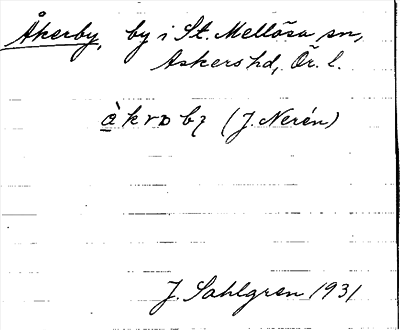 Åkerby, by i St. Mellösa sn,
Askers hd, Ör. l.
(J. Nerén)
J. Sahlgren 1931